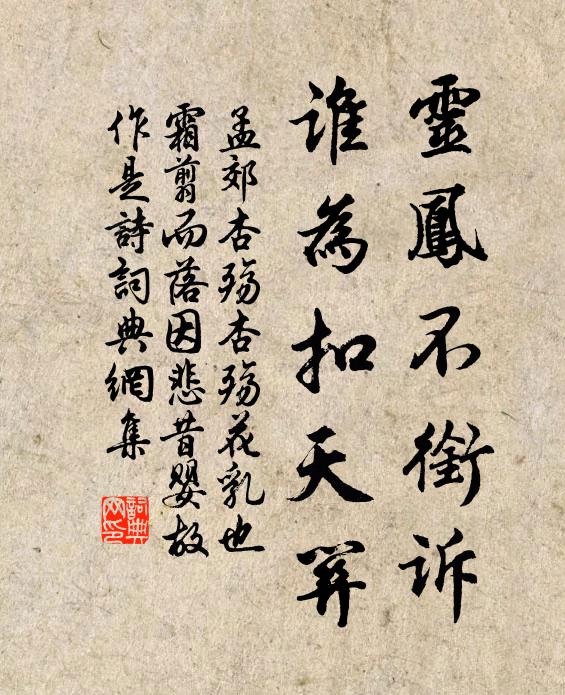 靈鳳不銜訴
誰為扣天關
孟郊杏殤杏殤花乳也
霜翦而落因悲昔嬰故
作是詩詞典網集
詞典
网印